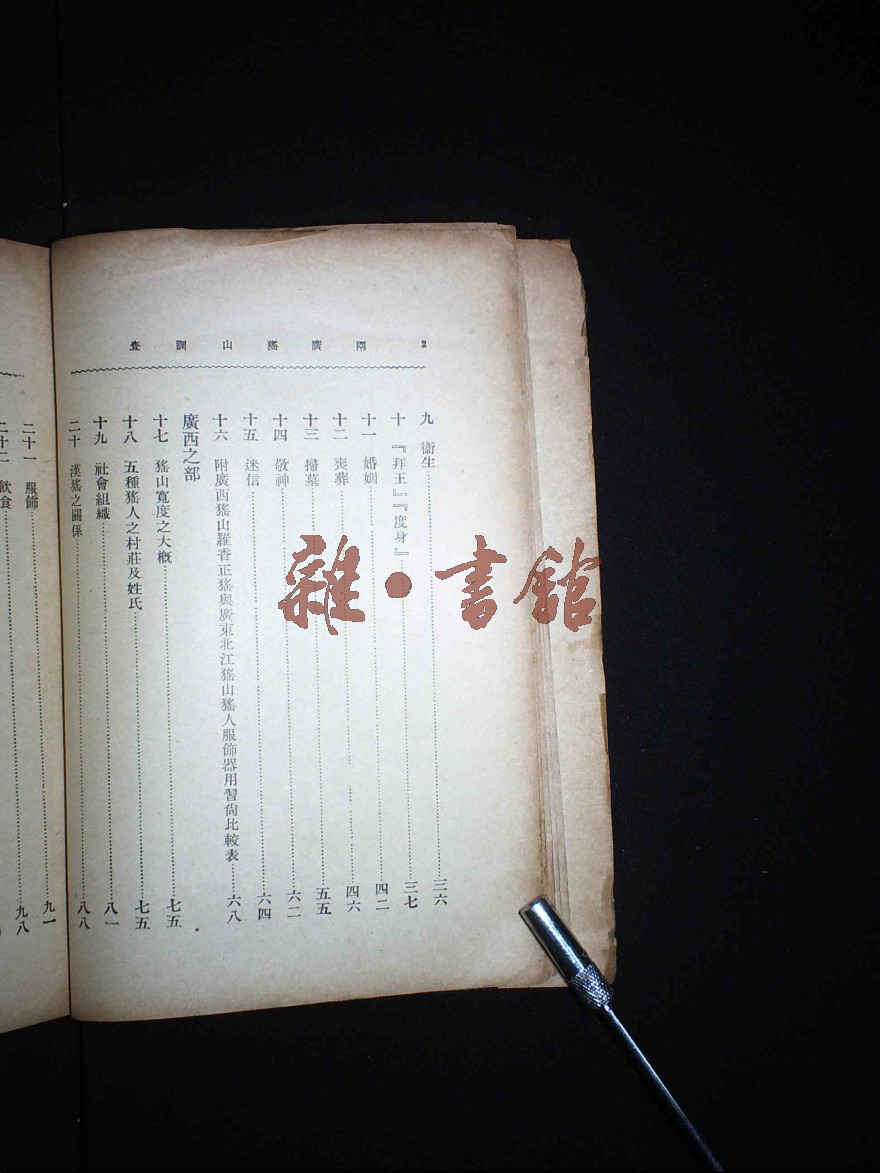 2 兩廣猺山調查
九 衞生 三六
十 『拜王』『度身』 三七
十一 婚姻 四二
十二 喪葬 四六
十三 掃墓 五五
十四 敬神 六二
十五 迷信 六四
十六 附廣西猺山羅香正猺與廣東北江猺山猺人服飾器用習尙比較表 六八
廣西之部
十七 猺山寬度之大概 七五
十八 五種猺人之村莊及姓氏 七五
十九 社會組織 八一
二十 漢猺之關係 八八
二十一 服飾 九一
二十二 飲食 九八
雜·書館